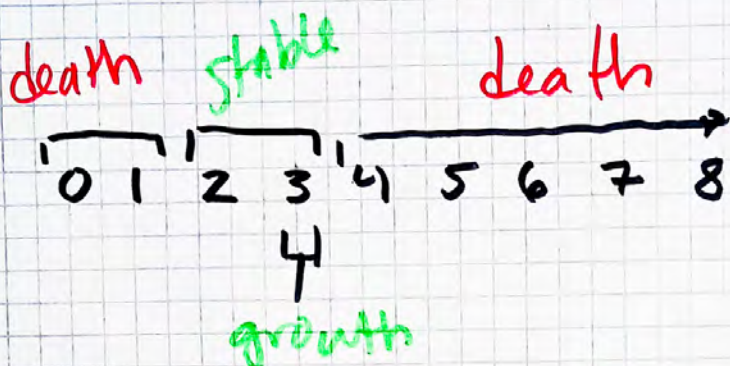 death stable death
0 1 2 3 4 5 6 7 8
growth